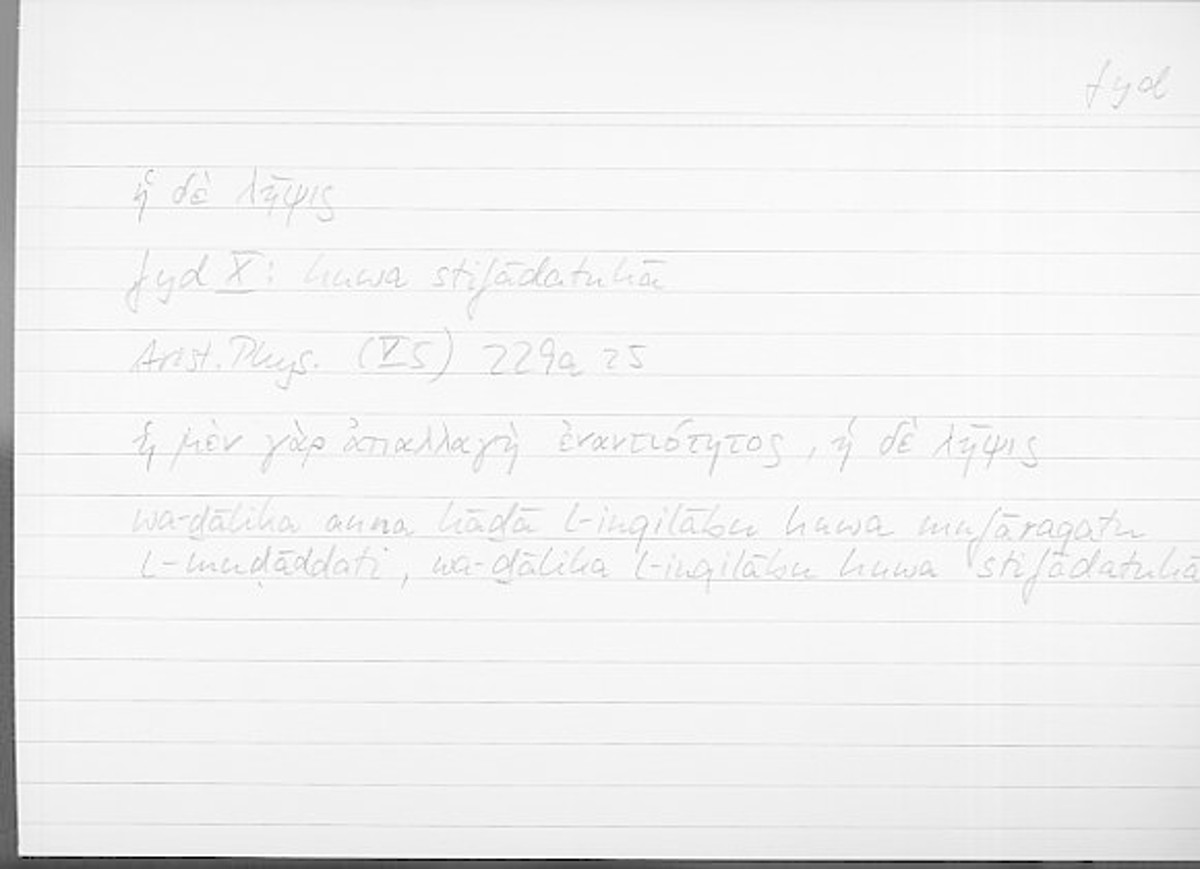 fyd
ἡ δὲ λῆψις
fyd X: huwa stifādatuhā
Arist. Phys. (V5) 229a 25
ἡ μὲν γὰρ ἀπαλλαγὴ ἐναντιότητος, ἡ δὲ λῆψις
wa-ḏālika anna hāḏā l-inqilābu huwa mufāraqatu
l-muḍāddati, wa-ḏālika l-inqilābu huwa stifādatuhā